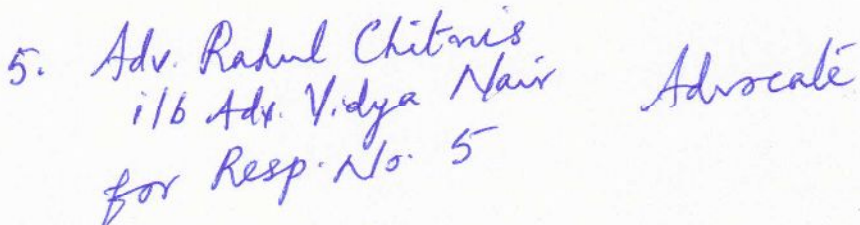 5. Adv. Rahul Chitnis
i/b Adv. Vidya Nair Advocate
for Resp. No. 5